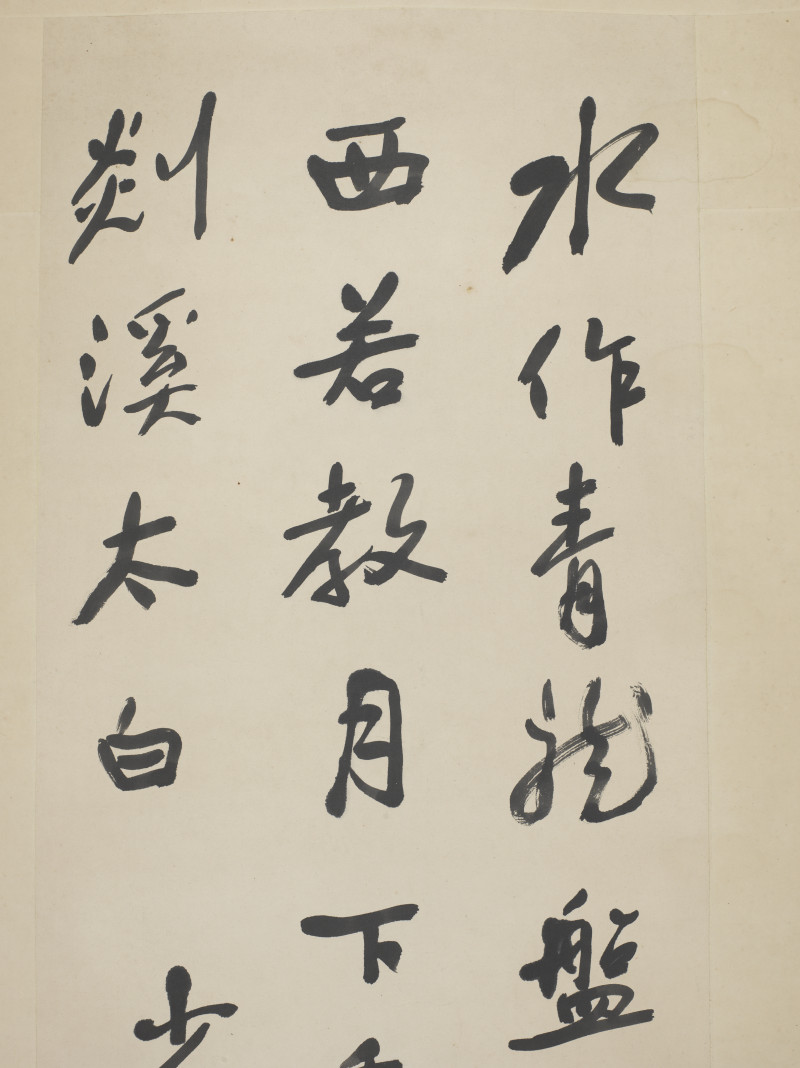 水作青龍盤
西若教月下
剡溪太白